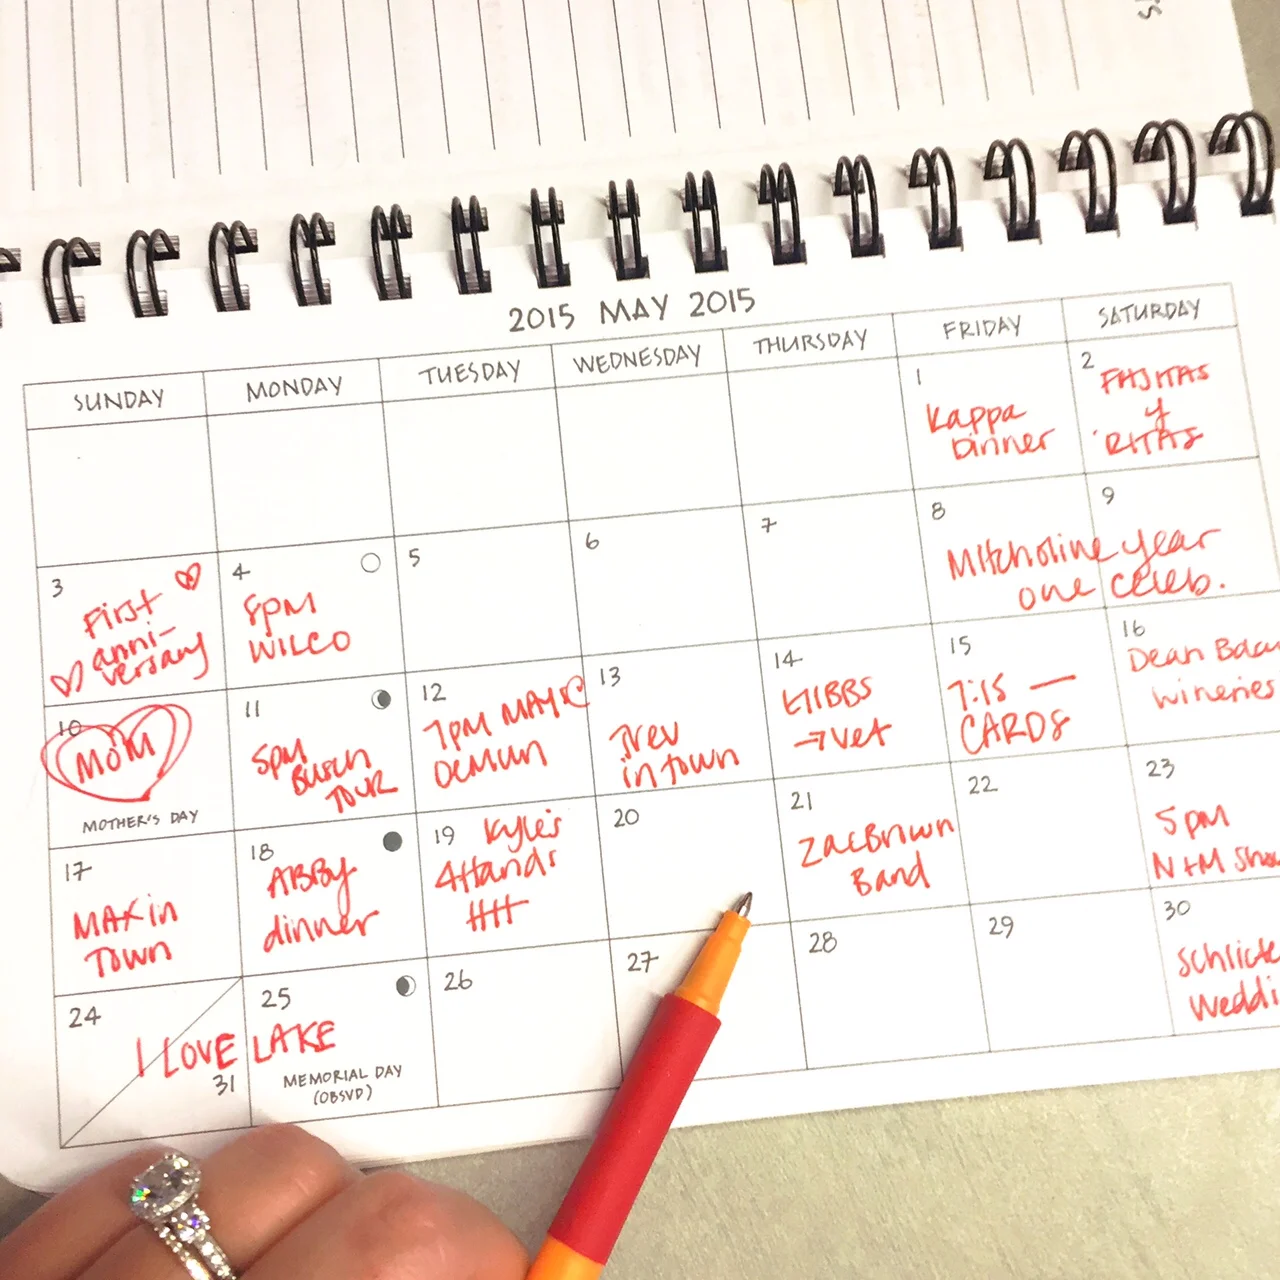 2015 MAY 2015
SUNDAY MONDAY TUESDAY WEDNESDAY THURSDAY FRIDAY SATURDAY
1
Kappa
Dinner
2
FAJITAS
y
'RITAS
3
First
anni-
versary
4
8PM
WILCO
5
6
7
8
9
Mitcholine year
one celeb.
10
MOM
MOTHER'S DAY
11
5PM
BUSCH
TOUR
12
7PM MAY
13
Trev
in town
14
GIBBS
→ Vet
15
7:15 —
CARDS
16
Dean
wineries
17
MAX in
TOWN
18
ABBY
dinner
19 Kyle's
4Hands
20
21
Zac Brown
Band
22
23
5pm
N+M
24
31
25
I LOVE LAKE
MEMORIAL DAY
(OBSVD)
26
27
28
29
30